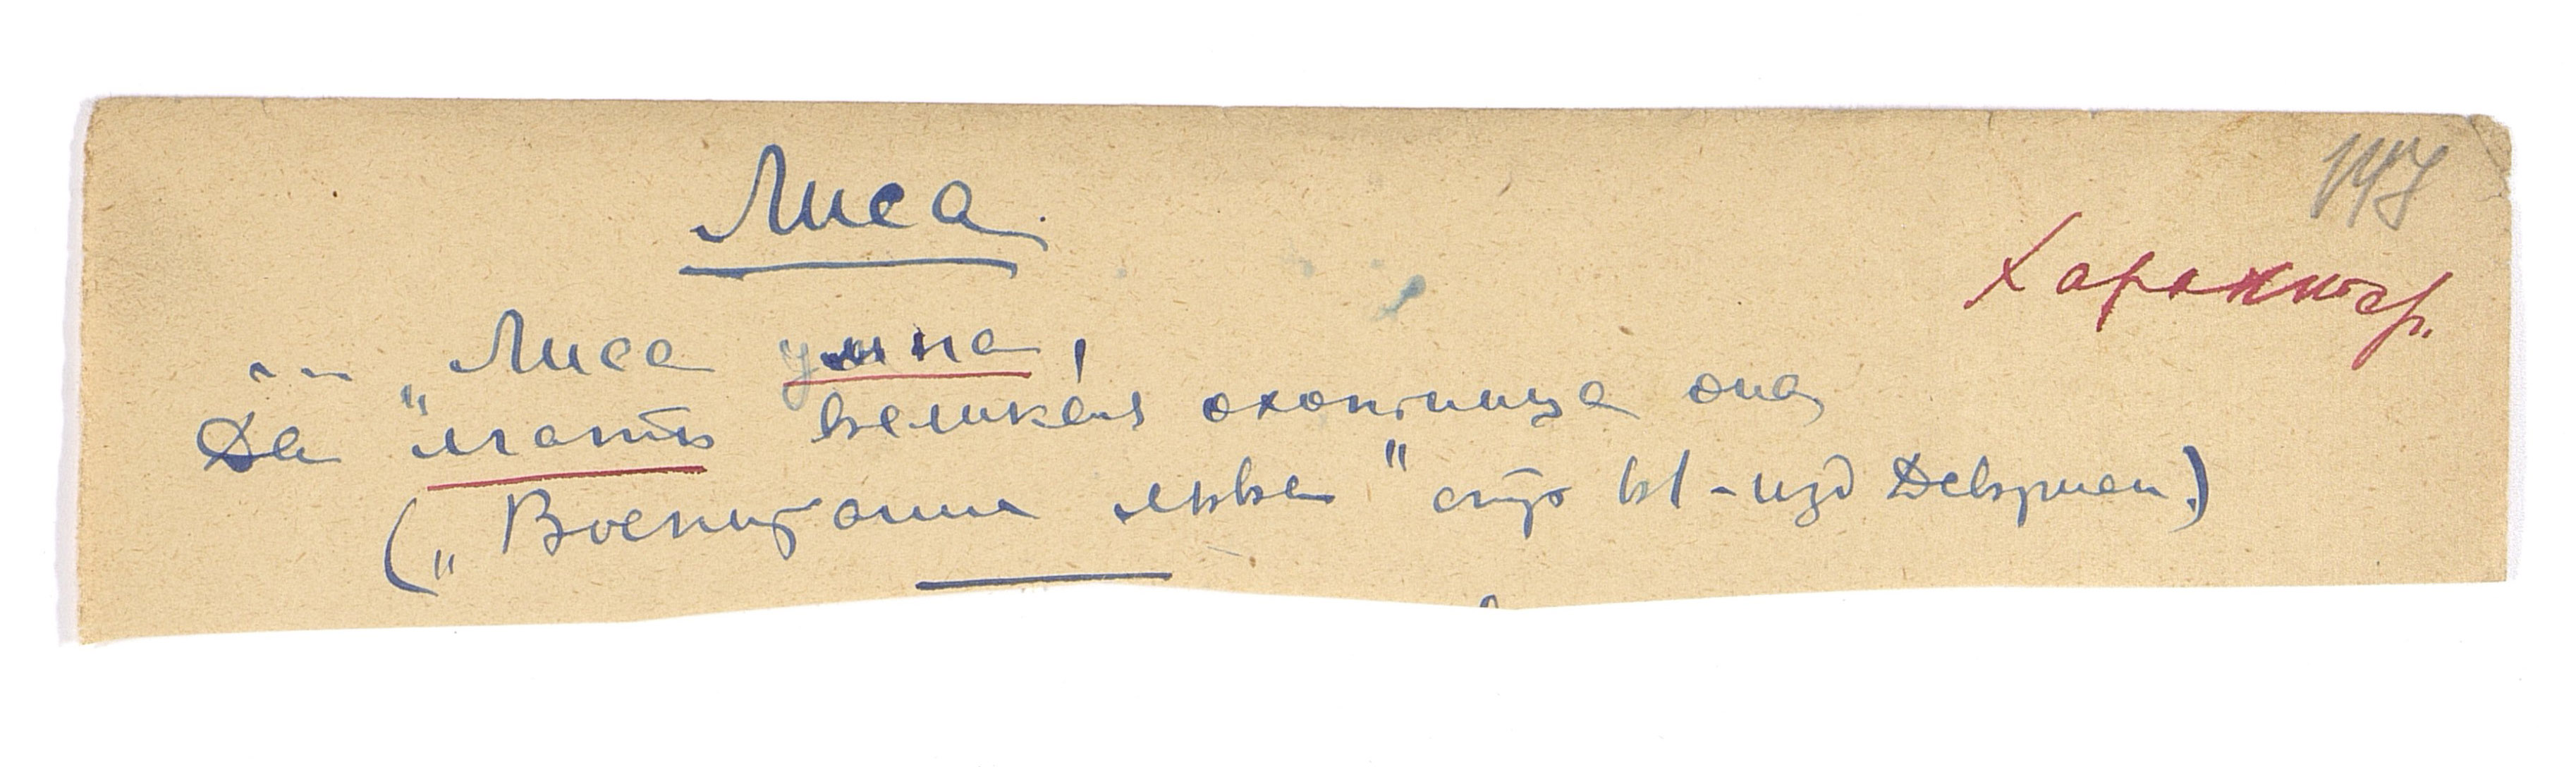 147
Лиса
Характер.
... „Лиса умна,
Да лгать великая охотница она
(„Воспитание льва" стр 61 - изд Девриен)